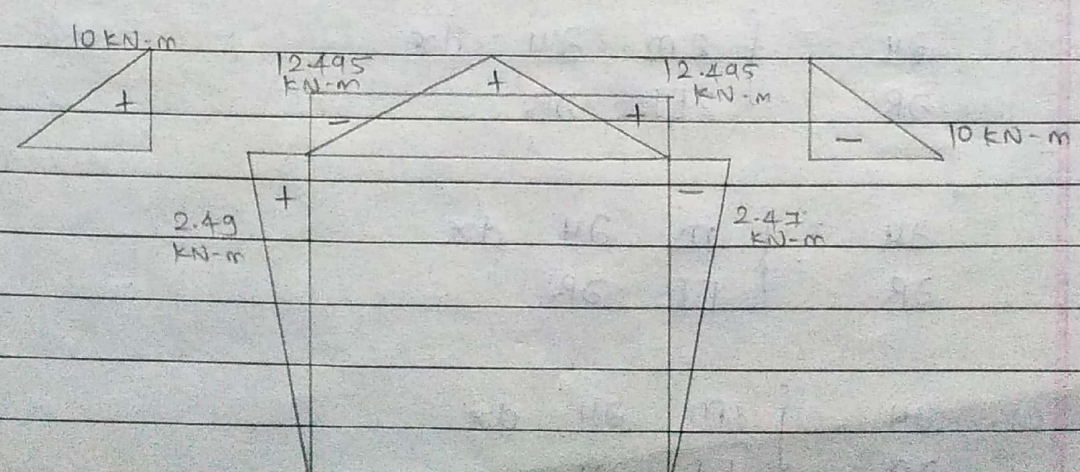 10 KN-m
12.495
KN-m
+
12.495
KN-m
+
-
+
-
10 KN-m
+
-
2.49
KN-m
2.47
KN-m